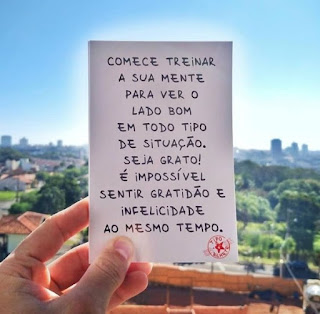 COMECE TREINAR
A SUA MENTE
PARA VER O
LADO BOM
EM TODO TIPO
DE SITUAÇÃO.
SEJA GRATO!
É IMPOSSÍVEL
SENTIR GRATIDÃO E
INFELICIDADE
AO MESMO TEMPO.
TIPO